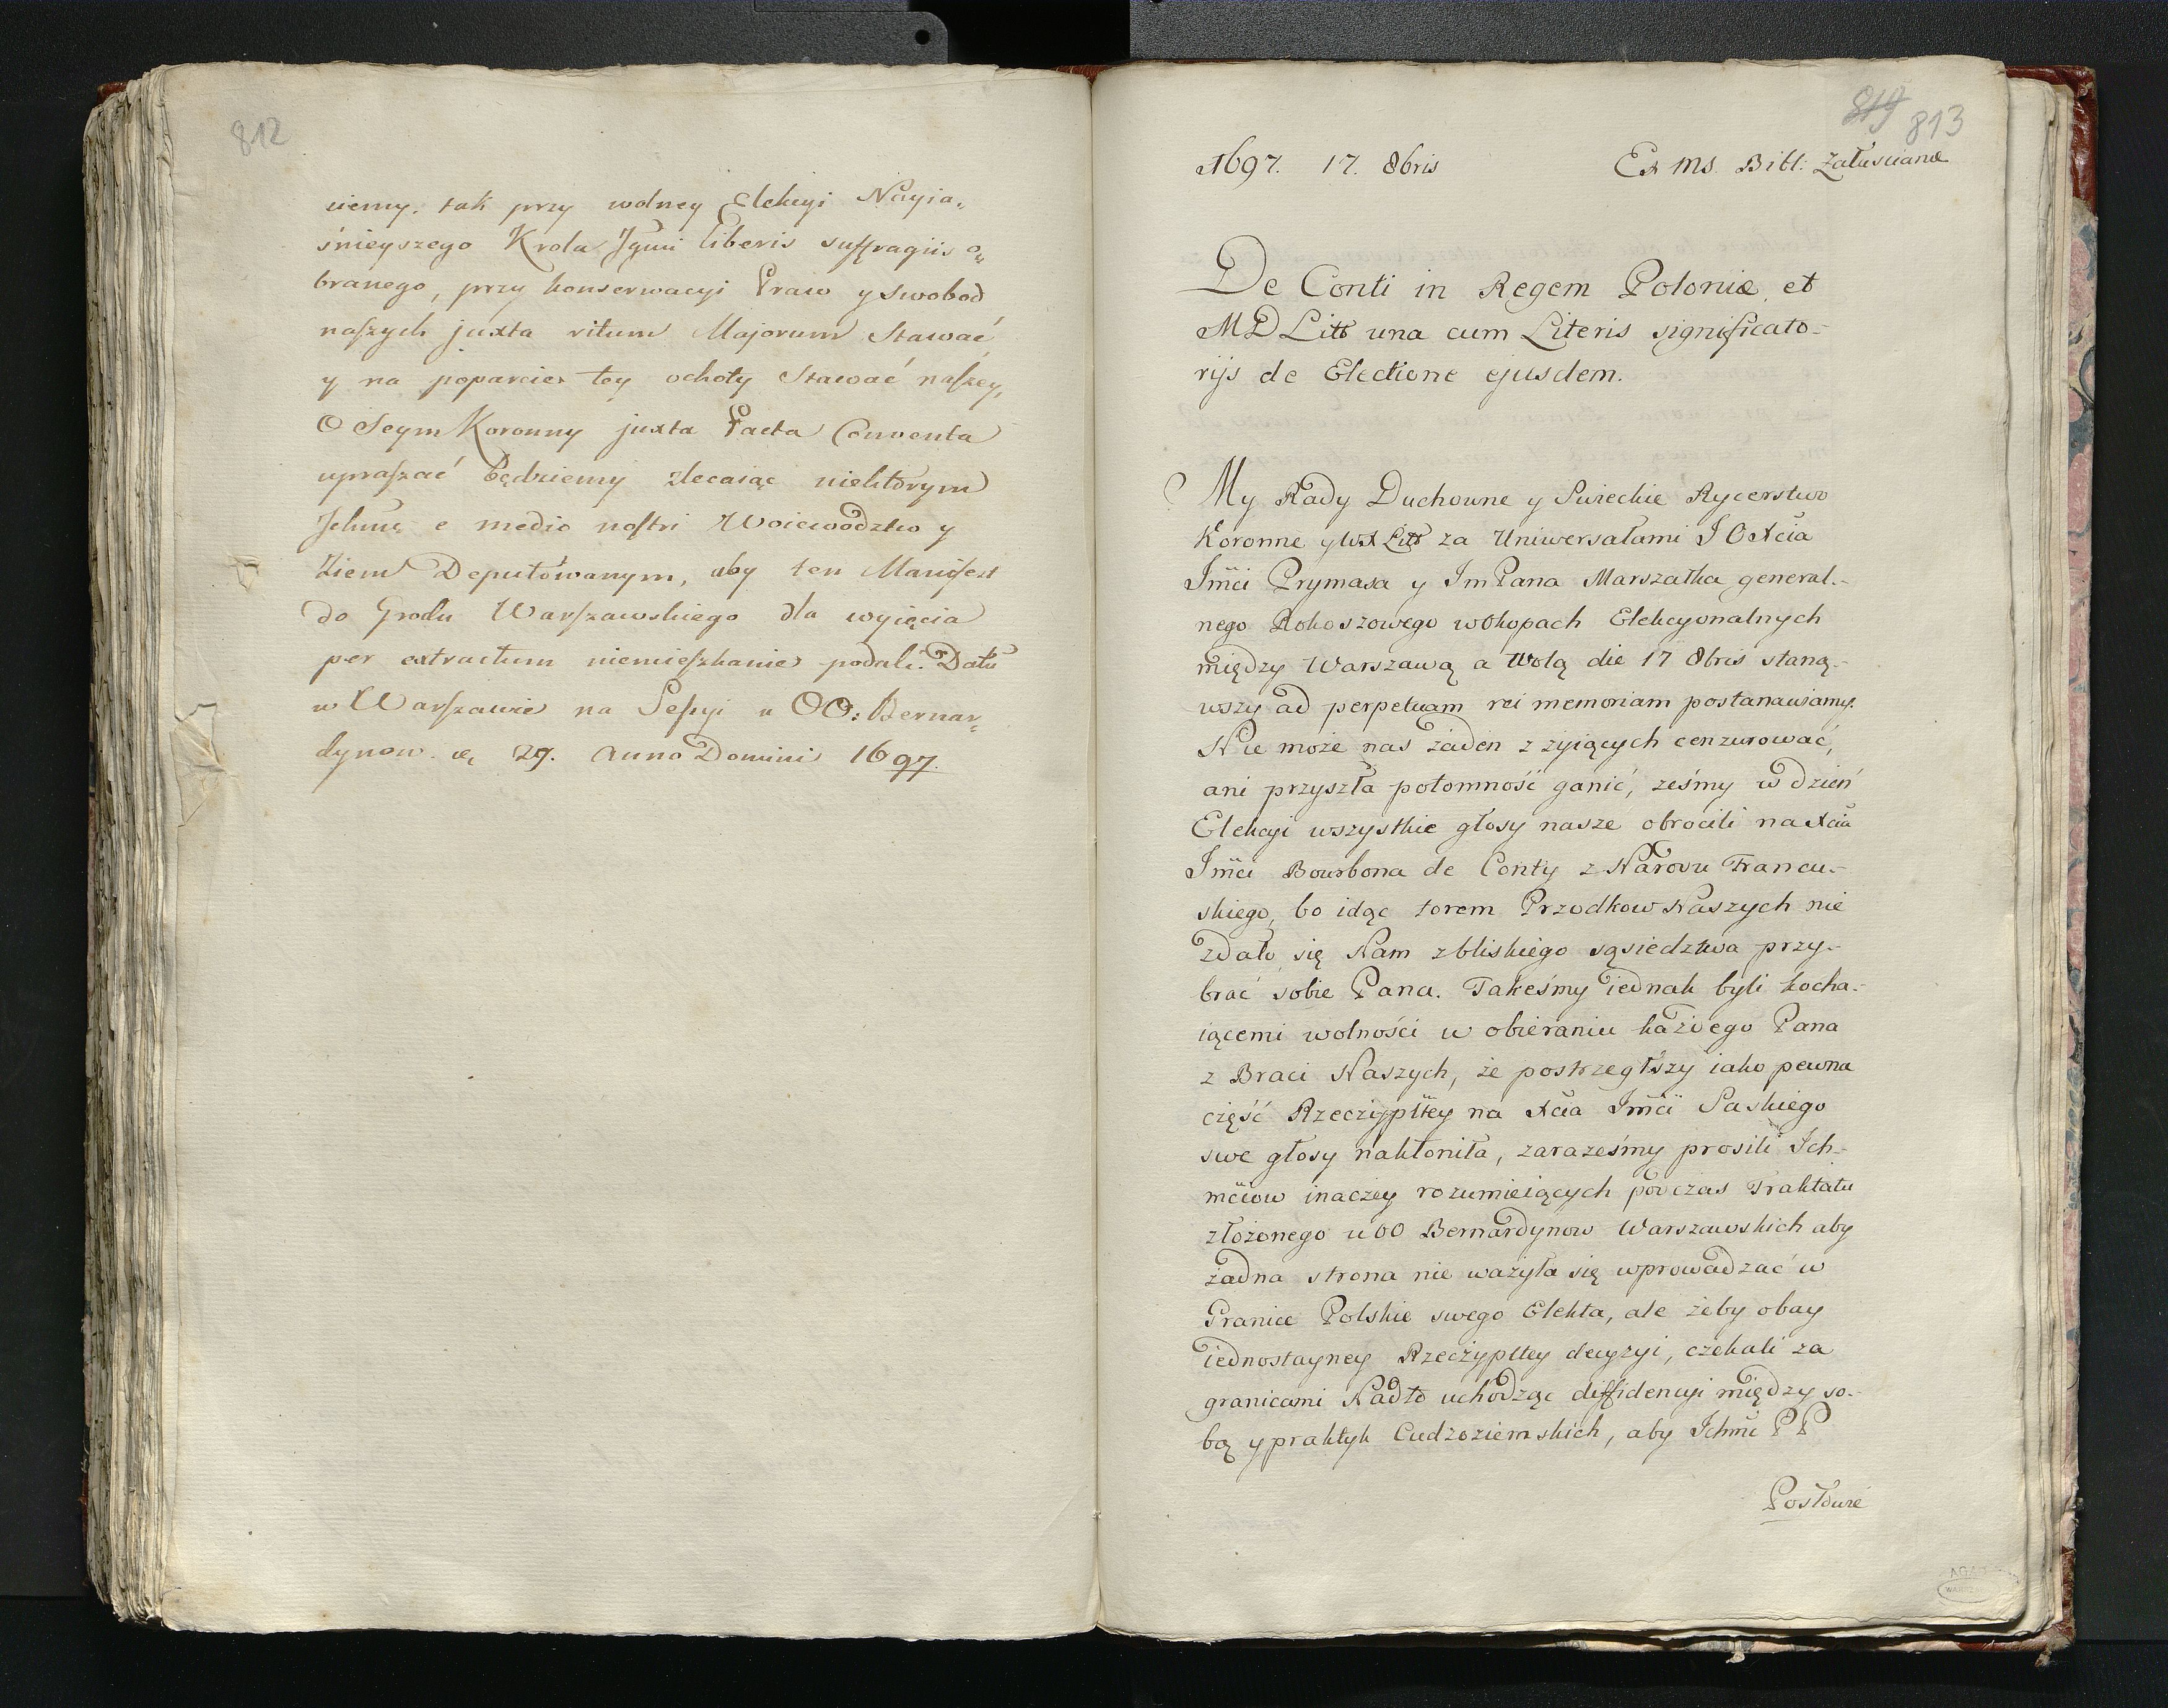 812
niemy. tak przy wolney Elekcyi Nayia„
śnieyszego Krola Jgmi liberis suffragiis o„
branego, przy konserwacyi Praw y Swobod
naszych juxta ritum Majorum Stawać
y na poparcie tey ochoty Stawać naszey,
O Seym Koronny juxta Pacta Conventa
upraszać będziemy zlecaiąc niektorym
e medio nostri Woiewodztw y
Ziem Deputowanym, aby ten Manifest
do Grodu Warszawskiego dla wyięcia
per extractum niemieszkanie podali. Datt
w Warszawie na Sessyi u OO: Bernar„
dynow. 27. Anno Domini 1697.
819 813
1697. 17. 8bris Ex Ms. Bibl: Załuscianæ
De Conti in Regem Poloniæ et
MD Litt una cum Literis significato-
rijs de Electione ejusdem.
My Rady Duchowne y Swieckie Rycerstwo
Koronne y WX Litt za Uniwersałami J O Xcia
Jmci Prymasa y Jm Pana Marszałka general-
nego Rokoszowego w Okopach Elekcyonalnych
między Warszawą a Wolą die 17 8bris staną-
wszy ad perpetuam rei memoriam postanawiamy.
Nie może nas żaden z żyiących cenzurować,
ani przyszła potomność ganić, ześmy w dzień
Elekcyi wszystkie głosy nasze obrocili na Xcia
Jmci Bourbona de Conty z Narodu Francu-
skiego, bo idąc torem Przodkow Naszych nie
zdało się Nam z bliskiego sąsiedztwa przy-
brać sobie Pana. Takeśmy iednak byli kocha-
iącemi wolności w obieraniu każdego Pana
z Braci Naszych, że postrzegłszy iako pewna
część Rzeczypltey na Xcia Jmci Saskiego
swe głosy nakłoniła, zaraześmy prosili Ich-
mciow inaczey rozumieiących podczas Traktatu
złożonego u OO Bernardynow Warszawskich aby
żadna strona nie ważyła się wprowadzać w
Granice Polskie swego Elekta, ale żeby obay
iednostayney Rzeczypltey decyzyi, czekali za
granicami Nadto uchodząc diffidencyi między so-
bą y praktyk Cudzoziemskich, aby Ichmc PP
Posłowie